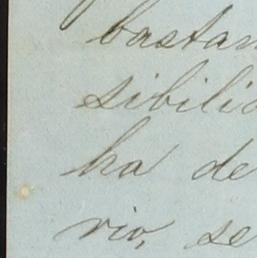 bastan
sibilid
ha de
rio, se